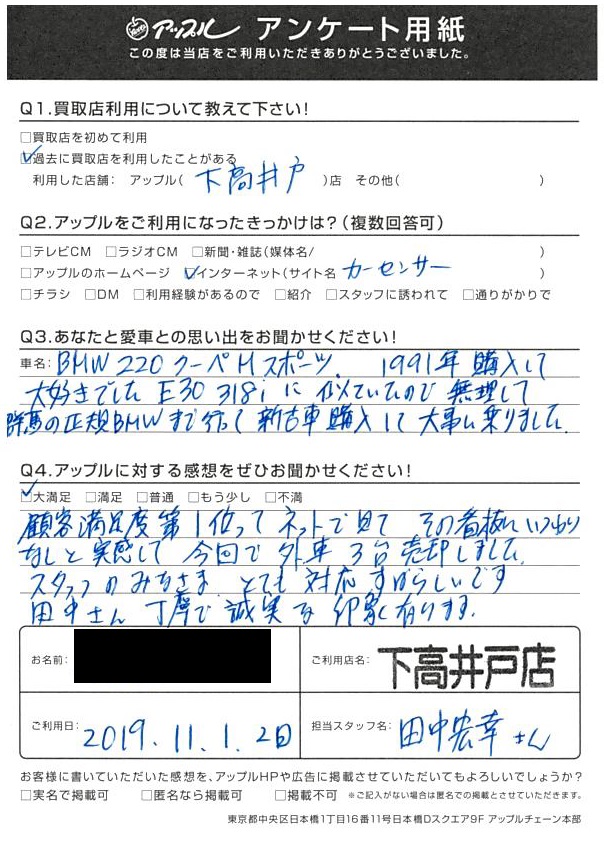 アップル アンケート用紙
この度は当店をご利用いただきありがとうございました。
Q1.買取店利用について教えて下さい！
□買取店を初めて利用
☑過去に買取店を利用したことがある
利用した店舗： アップル( 下高井戸 )店 その他( )
Q2.アップルをご利用になったきっかけは？(複数回答可)
□テレビCM □ラジオCM □新聞・雑誌(媒体名/ )
□アップルのホームページ ☑インターネット(サイト名 カーセンサー )
□チラシ □DM □利用経験があるので □紹介 □スタッフに誘われて □通りがかりで
Q3.あなたと愛車との思い出をお聞かせください！
車名：BMW 220 クーペMスポーツ、 1991年購入して
大好きでした E30 318i に似ていたので 無理して
群馬の正規BMWまで行って 新古車購入して 大事に乗りました。
Q4.アップルに対する感想をぜひお聞かせください！
☑大満足 □満足 □普通 □もう少し □不満
顧客満足度第1位って ネットで見て その看板にいつわり
なしと実感して 今回で 外車3台売却しました。
スタッフのみなさま とても 対応すばらしいです
田中さん 丁寧で 誠実な印象有ります。
お名前：
ご利用店名： 下高井戸店
ご利用日： 2019.11.1.2回
担当スタッフ名： 田中宏幸さん
お客様に書いていただいた感想を、アップルHPや広告に掲載させていただいてもよろしいでしょうか？
□実名で掲載可 □匿名なら掲載可 □掲載不可 ※ご記入がない場合は匿名での掲載とさせていただきます。
東京都中央区日本橋1丁目16番11号日本橋Dスクエア9F アップルチェーン本部